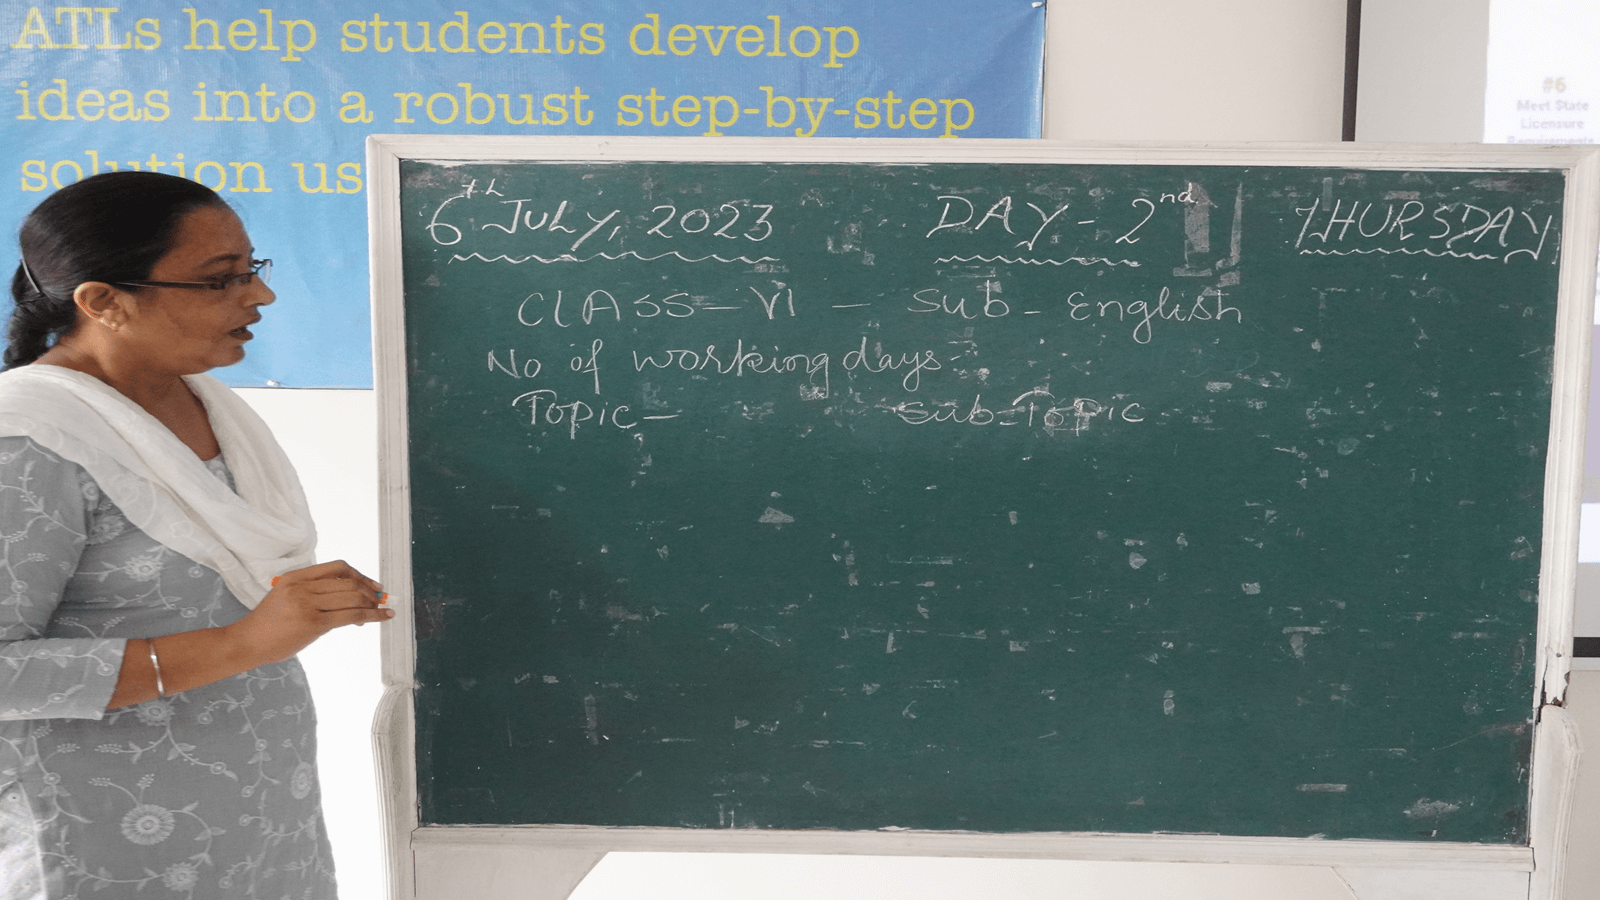 ATLs help students develop
ideas into a robust step-by-step
solution us
#6
Meet State
Licensure
Requirements
6th JULY, 2023 DAY - 2nd THURSDAY
ClASS - VI - Sub - English
No of working days -
Topic - Sub-Topic